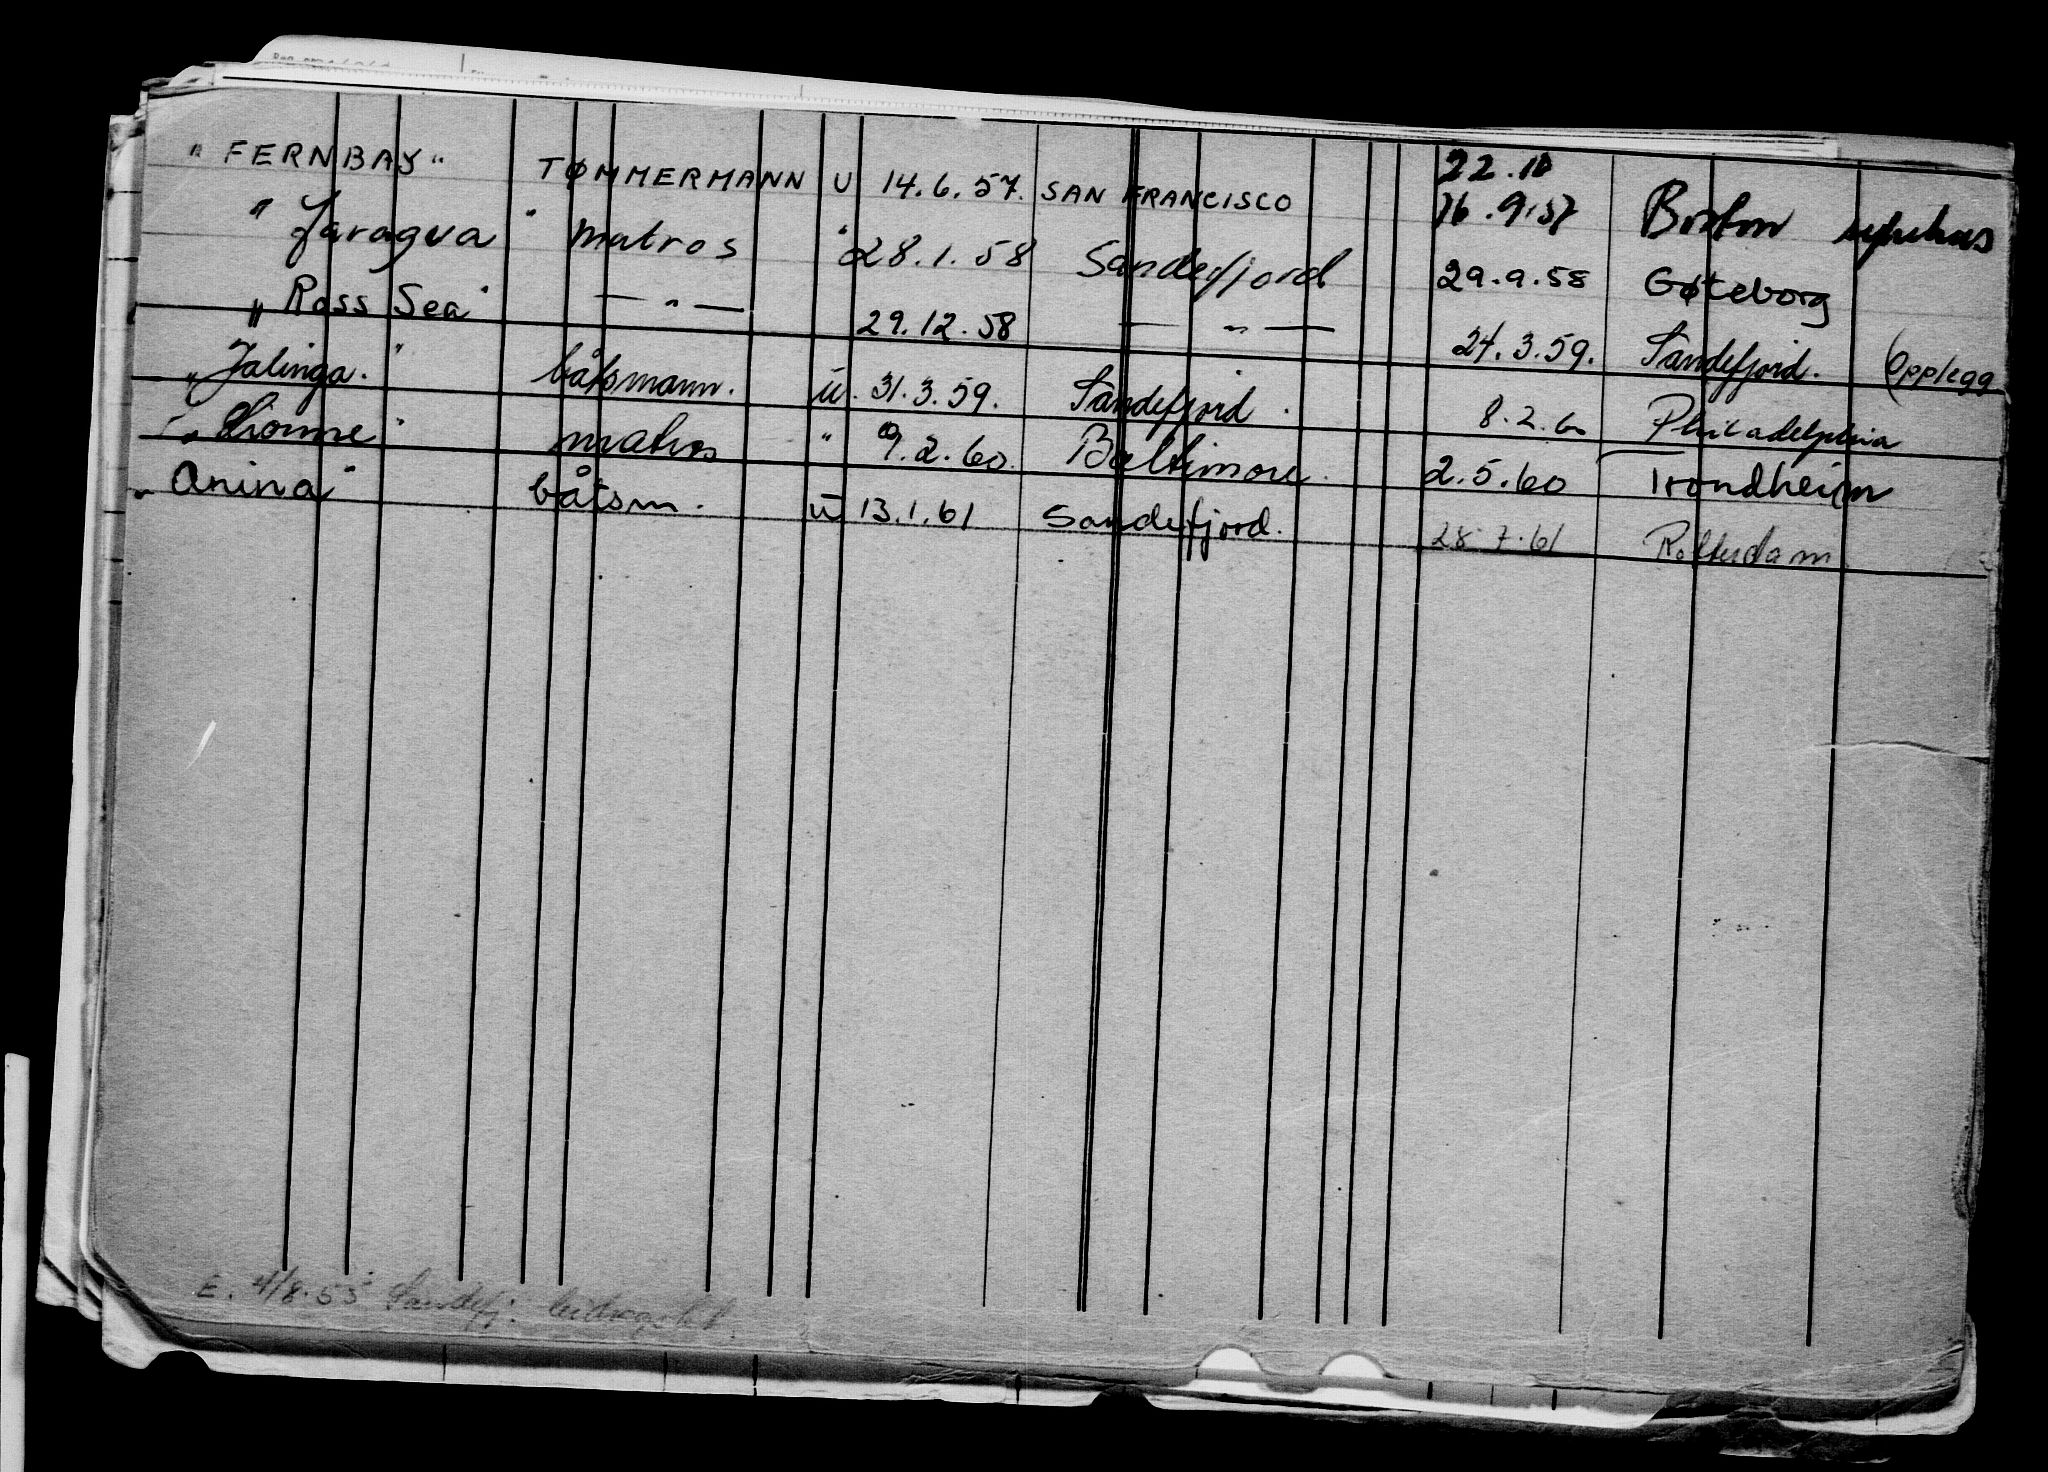 „ FERNBAY “ TØMMERMANN U 14.6.57. SAN FRANCISCO 22.10 16.9.57 Boston sykehus
" Jaragua " matros " 28.1.58 Sandefjord 29.9.58 Gøteborg
„ Ross Sea " — „ — 29.12.58 — „ — 24.3.59. Sandefjord. (Opplegg
„ Jalinga. " båtsmann. u. 31.3.59. Sandefjord. 8.2.60 Philadelphia
„ " matros " 9.2.60. Baltimore. 2.5.60 Trondheim
„ Anina " båtsm. u 13.1.61 Sandefjord. 28.7.61 Rotterdam
E. 4/8.55 Sandefj.